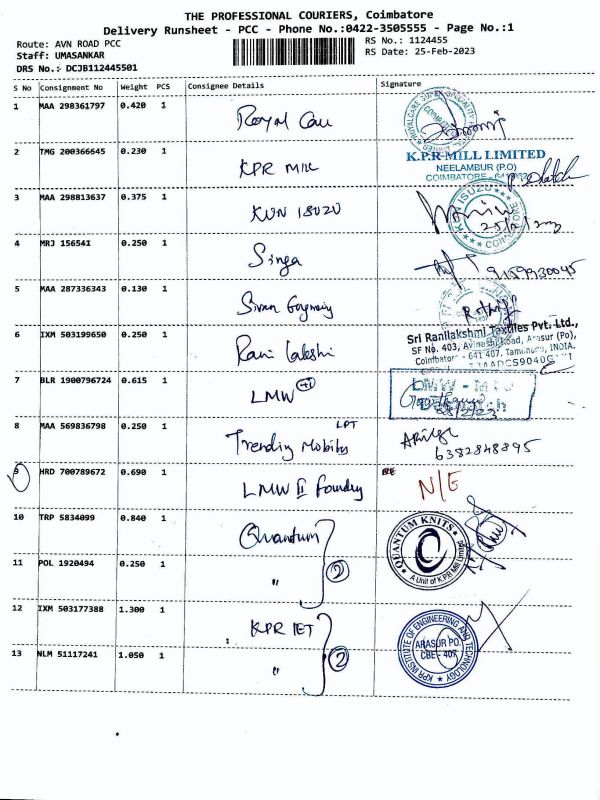 THE PROFESSIONAL COURIERS, Coimbatore
Delivery Runsheet - PCC - Phone No.:0422-3505555 - Page No.:1
Route: AVN ROAD PCC
RS No.: 1124455
Staff: UMASANKAR
RS Date: 25-Feb-2023
DRS No.: DCJB112445501
S No Consignment No Weight PCS Consignee Details Signature
1 MAA 298361797 0.420 1 Royal Care
COIMBATORE
2 TMG 200366645 0.230 1 KPR Mill
K.P.R MILL LIMITED
NEELAMBUR (P.O)
COIMBATORE -
3 MAA 298813637 0.375 1 KUN ISUZU
KUN ISUZU
4 MRJ 156541 0.250 1 Singa
9159930045
5 MAA 287336343 0.130 1
6 IXM 503199650 0.250 1 Rani Lakshmi
Sri Ranilakshmi Textiles Pvt. Ltd.,
SF No. 403, Avinashi Road, Arasur (Po),
Coimbatore - 641 407. Tamilnadu, INDIA.
7 BLR 1900796724 0.615 1 LMW +1
LMW -
8 MAA 569836798 0.250 1 Trending Mobiles LPT
6382848895
9 HRD 700789672 0.690 1 LMW II Foundry N/E
10 TRP 5834099 0.840 1 Quantum
QUANTUM KNITS
A Unit of K.P.R Mill Limited
11 POL 1920494 0.250 1 " 2
12 IXM 503177388 1.300 1 KPR IET
KPR INSTITUTE OF ENGINEERING AND TECHNOLOGY
ARASUR PO.
CBE- 407
13 NLM 51117241 1.050 1 " 2